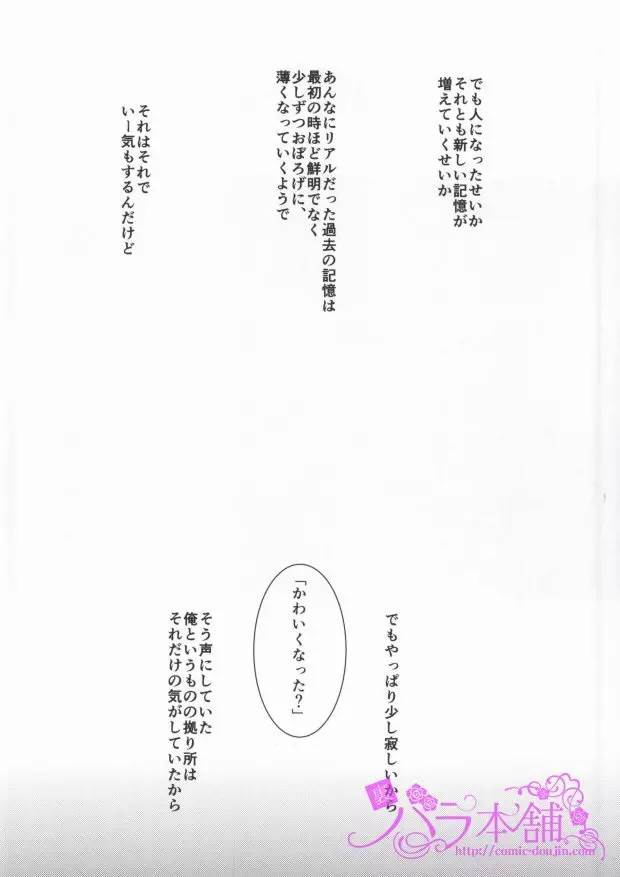 でも人になったせいか
それとも新しい記憶が
増えていくせいか
あんなにリアルだった過去の記憶は
最初の時ほど鮮明でなく
少しずつおぼろげに、
薄くなっていくようで
それはそれで
いー気もするんだけど
でもやっぱり少し寂しいから
「かわいくなった?」
そう声にしていた
俺というものの拠り所は
それだけの気がしていたから
裏
バラ本舗
http://comic-doujin.com/